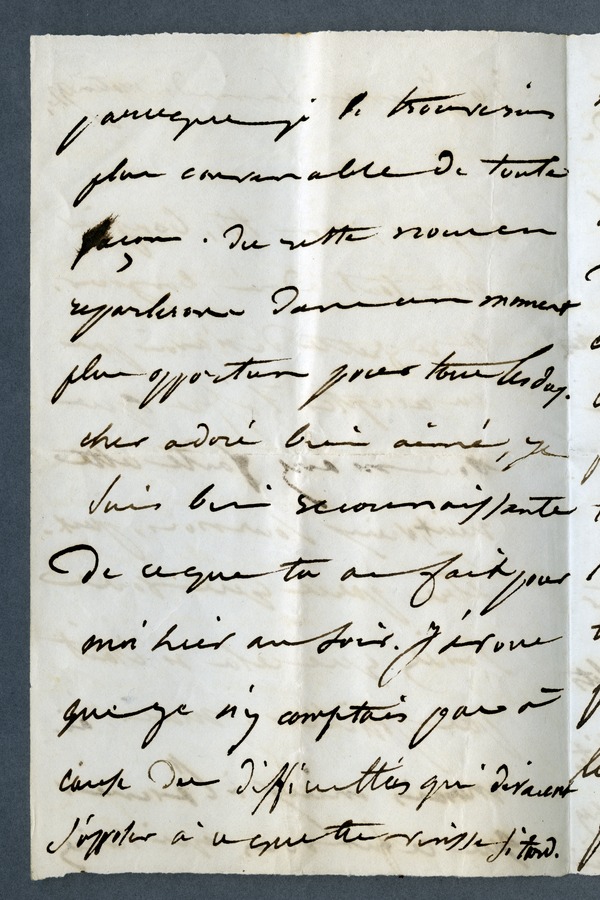 parceque je le trouverais
plus convenable de toute
façon. Du reste nous en
reparlerons dans un moment
plus opportun pour tous les deux.
cher adoré bien aimé, je
suis bien reconnaissante
de ce que tu as fait pour
moi hier au soir. J'avoue
que je n'y comptais pas à
cause des difficultés qui devaient
s'opposer à ce que tu vinsses si tard.